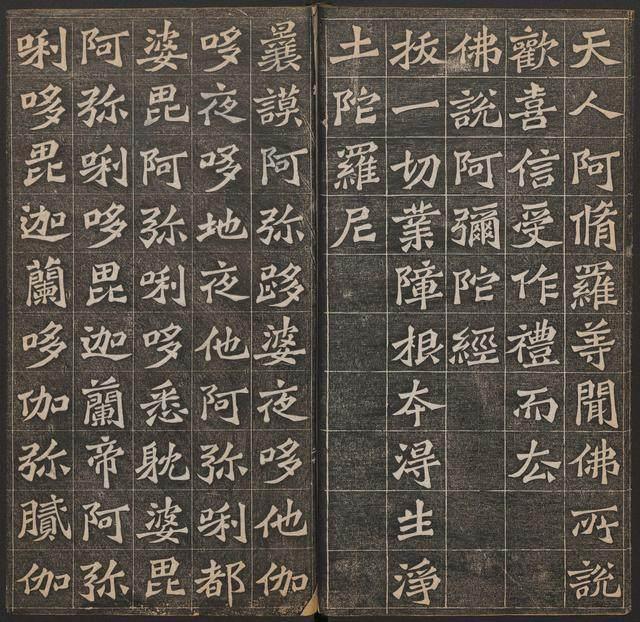 天人阿脩羅等聞佛所說
歡喜信受作禮而厺
佛說阿彌陀經
拔一切業障根本淂生淨
土陀羅尼
曩謨阿弥跢婆夜哆他伽
哆夜哆地夜他阿弥唎都
婆毘阿弥唎哆悉耽婆毘
阿弥唎哆毘迦蘭帝阿弥
唎哆毘迦蘭哆伽弥膩伽